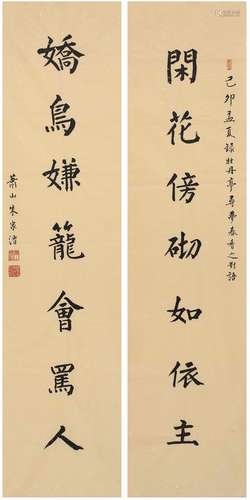 閑花傍砌如依主
己卯孟夏錄牡丹亭尋夢春香之對語
嬌鳥嫌籠會罵人
蕭山朱家溍